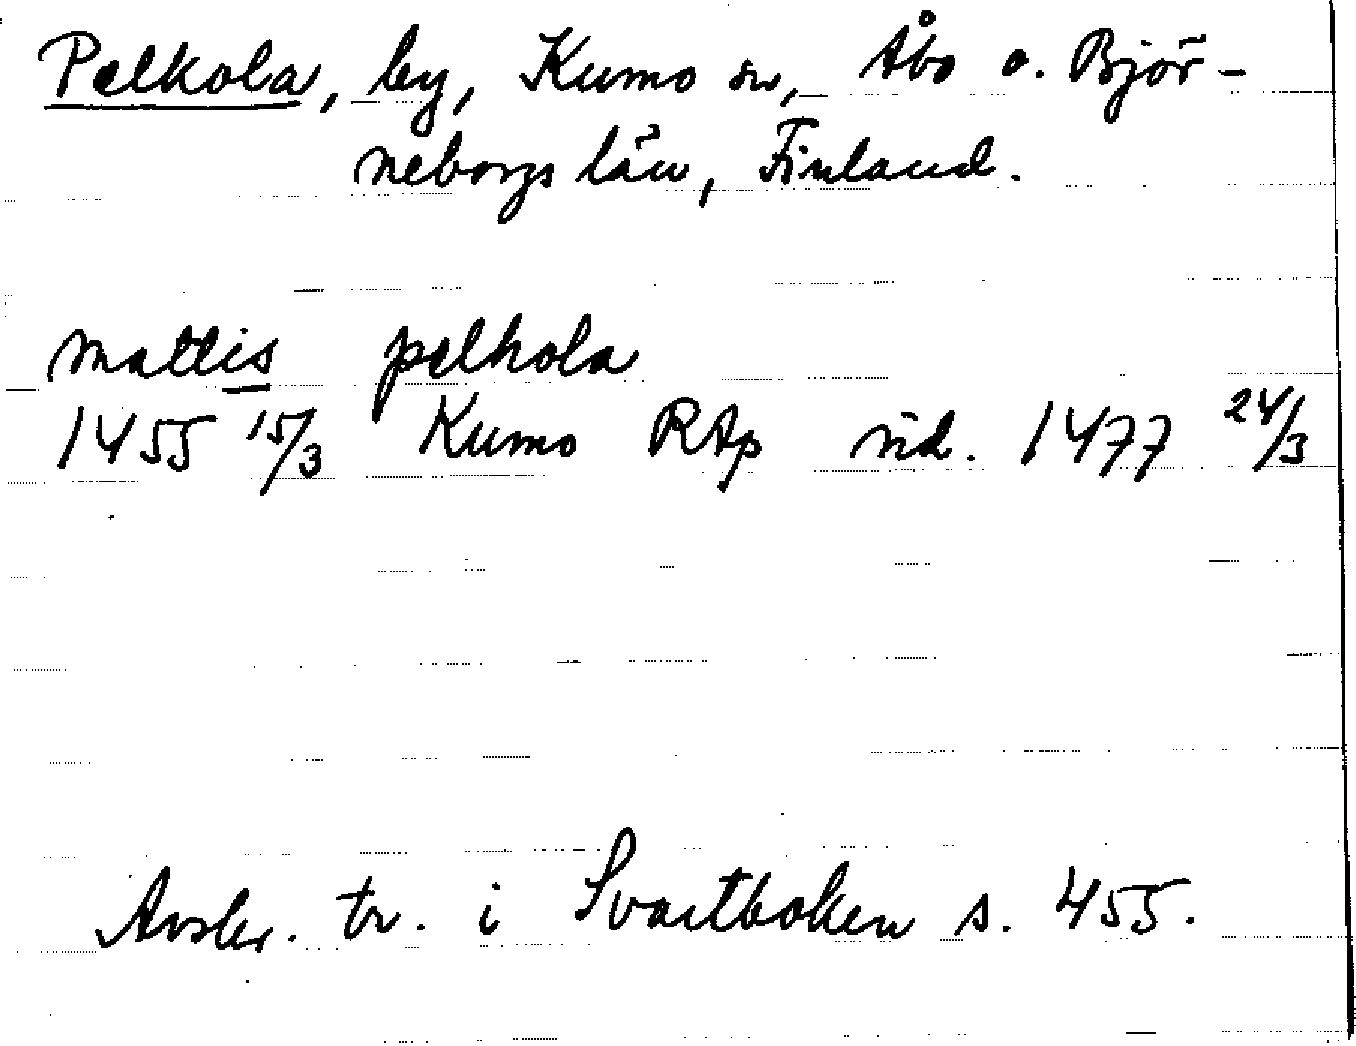 Pelkola, by, Kumo sn, Åbo o. Björ-
neborgs län, Finland.
mattis pelkola
1455 15/3 Kumo RAp vid. 1477 24/3
Avskr. tr. i Svartboken s. 455.